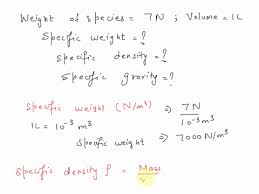 Weight of species = 7N ; Volume = 1L
Specific weight = ?
Specific density = ?
Specific gravity = ?
Specific weight (N/m³) ⇒ 7N / 10⁻³ m³
1L = 10⁻³ m³
Specific weight ⇒ 7000 N/m³
Specific density ρ = Mass